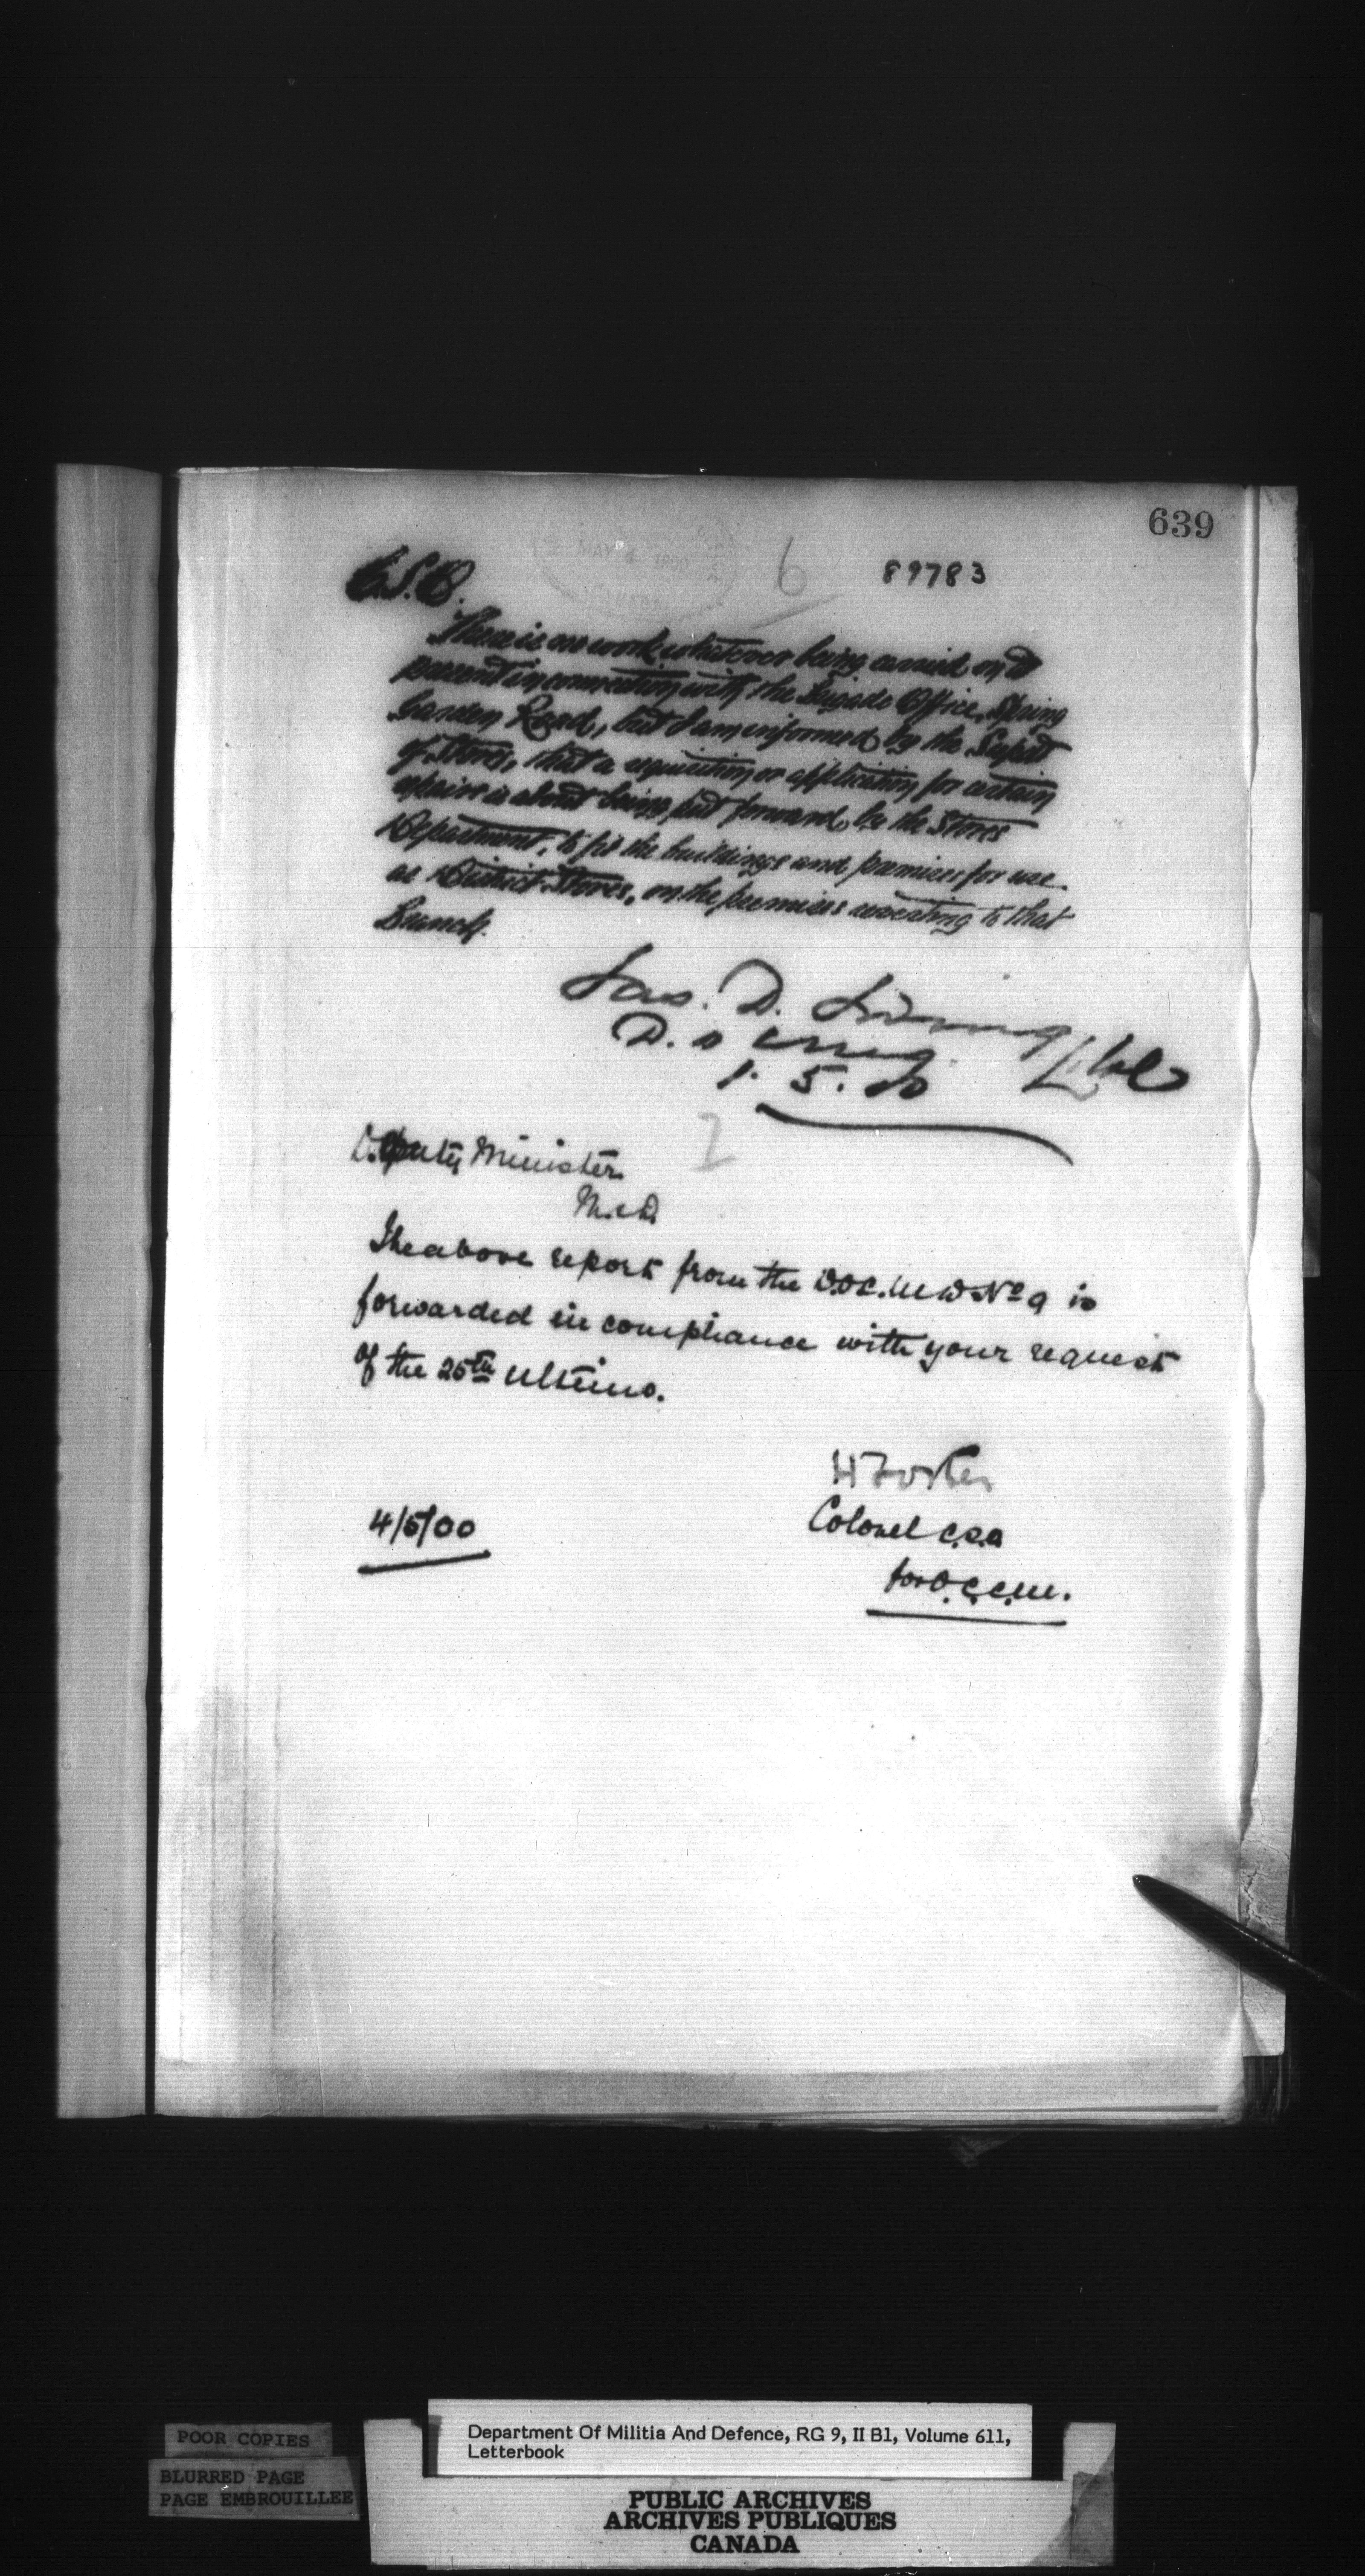 639
MAY 1900
6
89783
C.S.O.
There is no work whatever being carried on at
present in connection with the Brigade Office, Spring
Garden Road, but I am informed by the Supdt
of Stores, that a requisition or application for certain
repairs is about being put forward by the Stores
Department, to fit the buildings and premises for use
as District Stores, on the premises reverting to that
Branch.
Jas. D. Irving Lt Col
D.O.C.
1. 5. 00
7
Deputy Minister
M. & D.
The above report from the D.O.C. M D No 9 is
forwarded in compliance with your request
of the 25th ultimo.
H Foster
Colonel C.S.O
4/5/00
for O.C.C.M.
POOR COPIES
BLURRED PAGE
PAGE EMBROUILLEE
Department Of Militia And Defence, RG 9, II B1, Volume 611,
Letterbook
PUBLIC ARCHIVES
ARCHIVES PUBLIQUES
CANADA